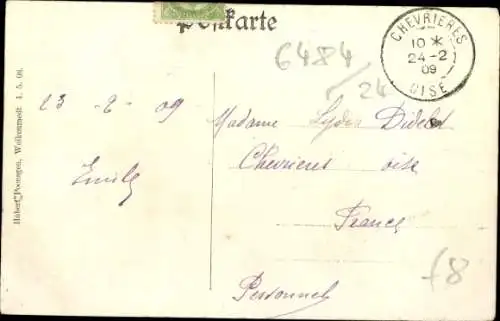 Postkarte
6484/24
CHEVRIERES
10 *
24-2
09
OISE
23-2-09
Emile
Madame Lydia Didelet
Chevrieres oise
France
Personnel
f8
Hubert Poensgen, Welkenraedt 1. 5. 08.